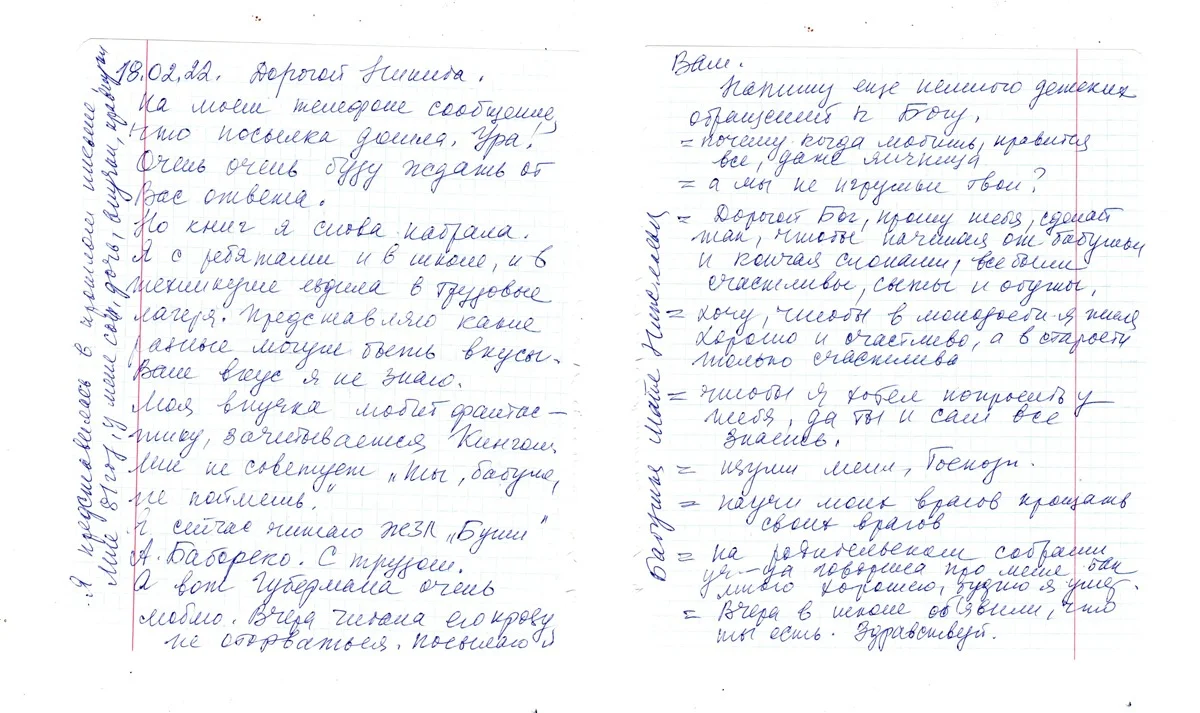 18.02.22. Дорогой Никита.
На моем телефоне сообщение,
что посылка дошла. Ура!
Очень очень буду ждать от
Вас ответа.
Но книг я снова набрала.
Я с ребятами и в школе, и в
техникуме ездила в трудовые
лагеря. Представляю какие
разные могут быть вкусы.
Ваш вкус я не знаю.
Моя внучка любит фантас-
тику, зачитывается Кингом.
Мне не советует „Ты, бабуля,
не поймешь."
Я сейчас читаю ЖЗЛ „Бунин"
А. Бабореко. С трудом.
А вот Губермана очень
люблю. Вчера читала его прозу
не оторваться. Посылаю и
Я представилась в прошлом письме,
Мне 81 год, у меня сын, дочь, внучки,
Вам.
Напишу еще немного детских
обращений к Богу.
= почему, когда любишь, нравится
все, даже яичница
= а мы не игрушки твои?
= Дорогой Бог, прошу тебя, сделай
так, чтобы начиная от бабушки
и кончая слонами, все были
счастливы, сыты и обуты.
= хочу, чтобы в молодости я жила
хорошо и счастливо, а в старости
только счастлива
= чтобы я хотел попросить у
тебя, да ты и сам все
знаешь.
= изуми меня, Господи.
= научи моих врагов прощать
своих врагов
= на родительском собрании
уч-ца говорила про меня так
много хорошего, будто я умер.
= Вчера в школе объявили, что
ты есть. Здравствуй.
Бабушка Майя